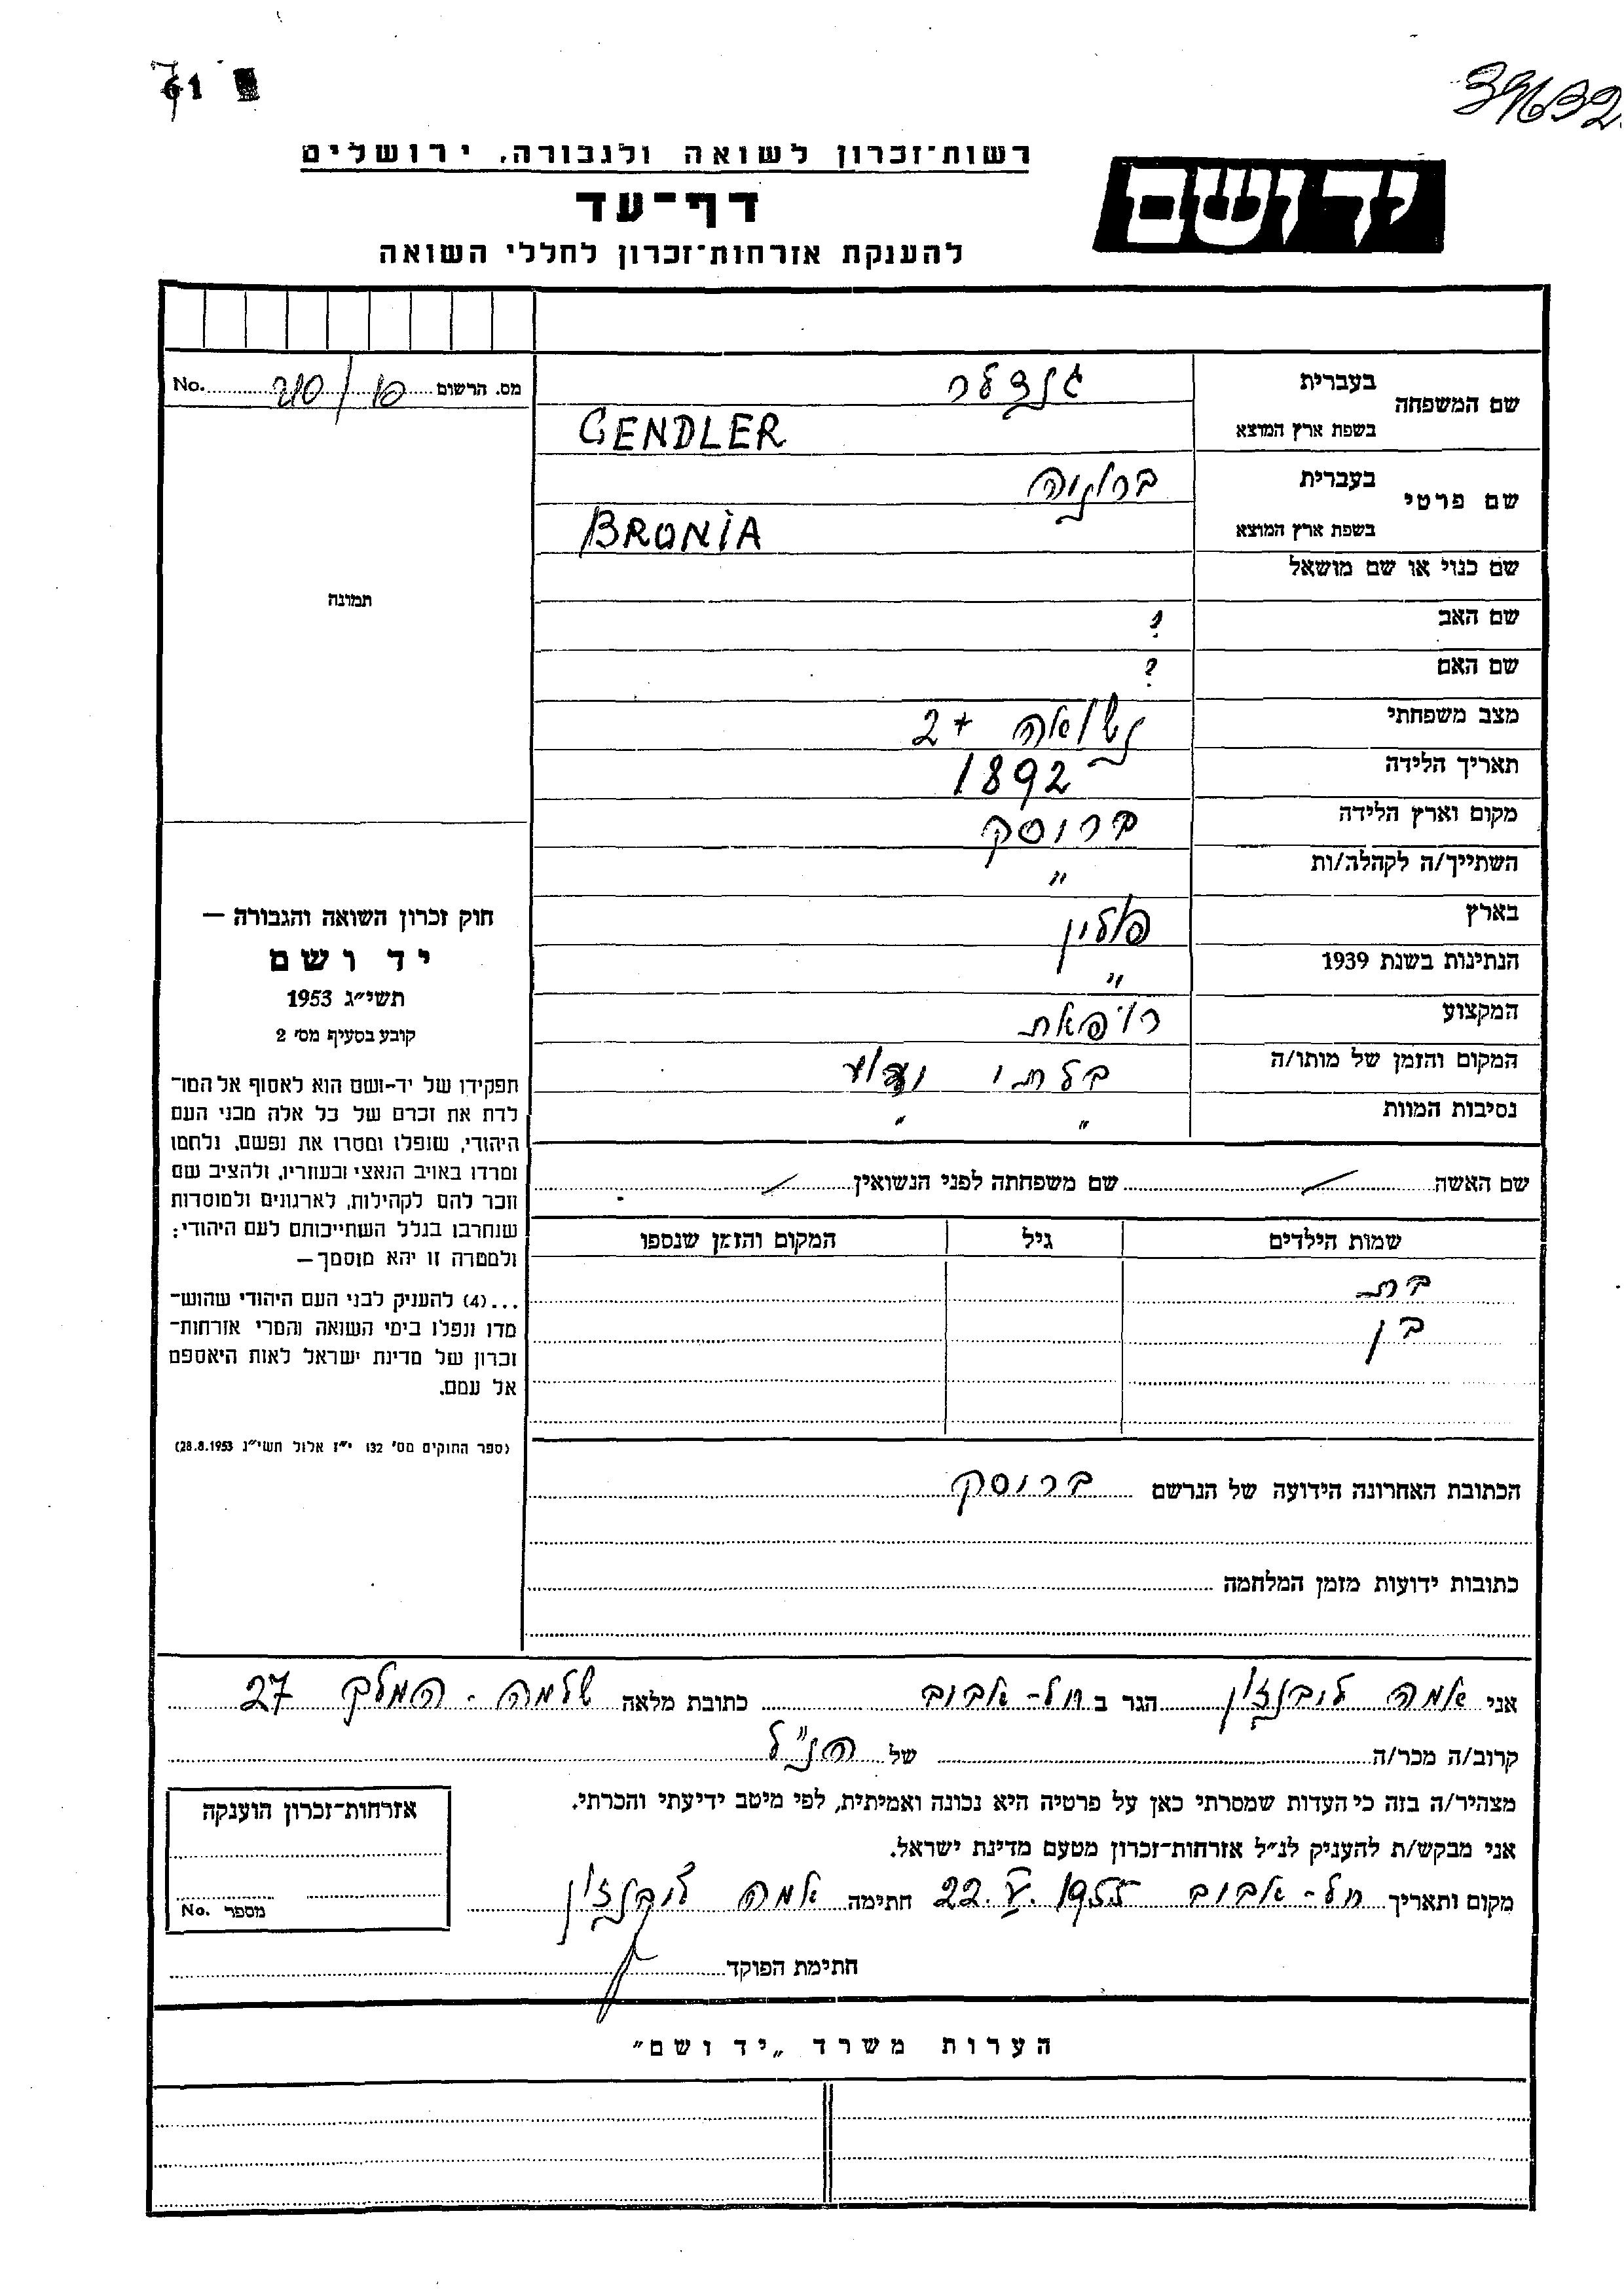 61
39632
רשות־זכרון לשואה ולגבורה, ירושלים
יד ושם
דף־עד
להענקת אזרחות־זכרון לחללי השואה
מס. הרשום No.
שם המשפחה
בעברית גנדלר
בשפת ארץ המוצא GENDLER
שם פרטי
בעברית ברוניה
בשפת ארץ המוצא BRONIA
שם כנוי או שם מושאל
תמונה
שם האב ?
שם האם ?
מצב משפחתי נשואה + 2
תאריך הלידה 1892
מקום וארץ הלידה ברוסק
השתייך/ה לקהלה/ות "
בארץ פולין
הנתינות בשנת 1939 "
המקצוע רופאת
המקום והזמן של מותו/ה בלתי ידוע
נסיבות המוות " "
שם האשה שם משפחתה לפני הנשואין
שמות הילדים גיל המקום והזמן שנספו
בת
בן
הכתובת האחרונה הידועה של הנרשם ברוסק
כתובות ידועות מזמן המלחמה
חוק זכרון השואה והגבורה —
יד ושם
תשי״ג 1953
קובע בסעיף מס׳ 2
תפקידו של יד-ושם הוא לאסוף אל המו־
לדת את זכרם של כל אלה מבני העם
היהודי, שנפלו ומסרו את נפשם, נלחמו
ומרדו באויב הנאצי ובעוזריו, ולהציב שם
וזכר להם לקהילות, לארגונים ולמוסדות
שנחרבו בגלל השתייכותם לעם היהודי;
ולמטרה זו יהא מוסמך—
...(4) להעניק לבני העם היהודי שהוש־
מדו ונפלו בימי השואה והמרי אזרחות־
זכרון של מדינת ישראל לאות היאספם
אל עמם.
(ספר החוקים מס׳ 132 י״ז אלול תשי״ג 28.8.1953)
אני אמה ליבנזון הגר ב תל-אביב כתובת מלאה שלמה-המלך 27
קרוב/ה מכר/ה של הנ"ל
מצהיר/ה בזה כי העדות שמסרתי כאן על פרטיה היא נכונה ואמיתית, לפי מיטב ידיעתי והכרתי.
אני מבקש/ת להעניק לנ״ל אזרחות־זכרון מטעם מדינת ישראל.
מקום ותאריך תל-אביב 22.V.1955 חתימה אמה ליבנזון
חתימת הפוקד
אזרחות־זכרון הוענקה
מספר No.
הערות משרד „יד ושם"